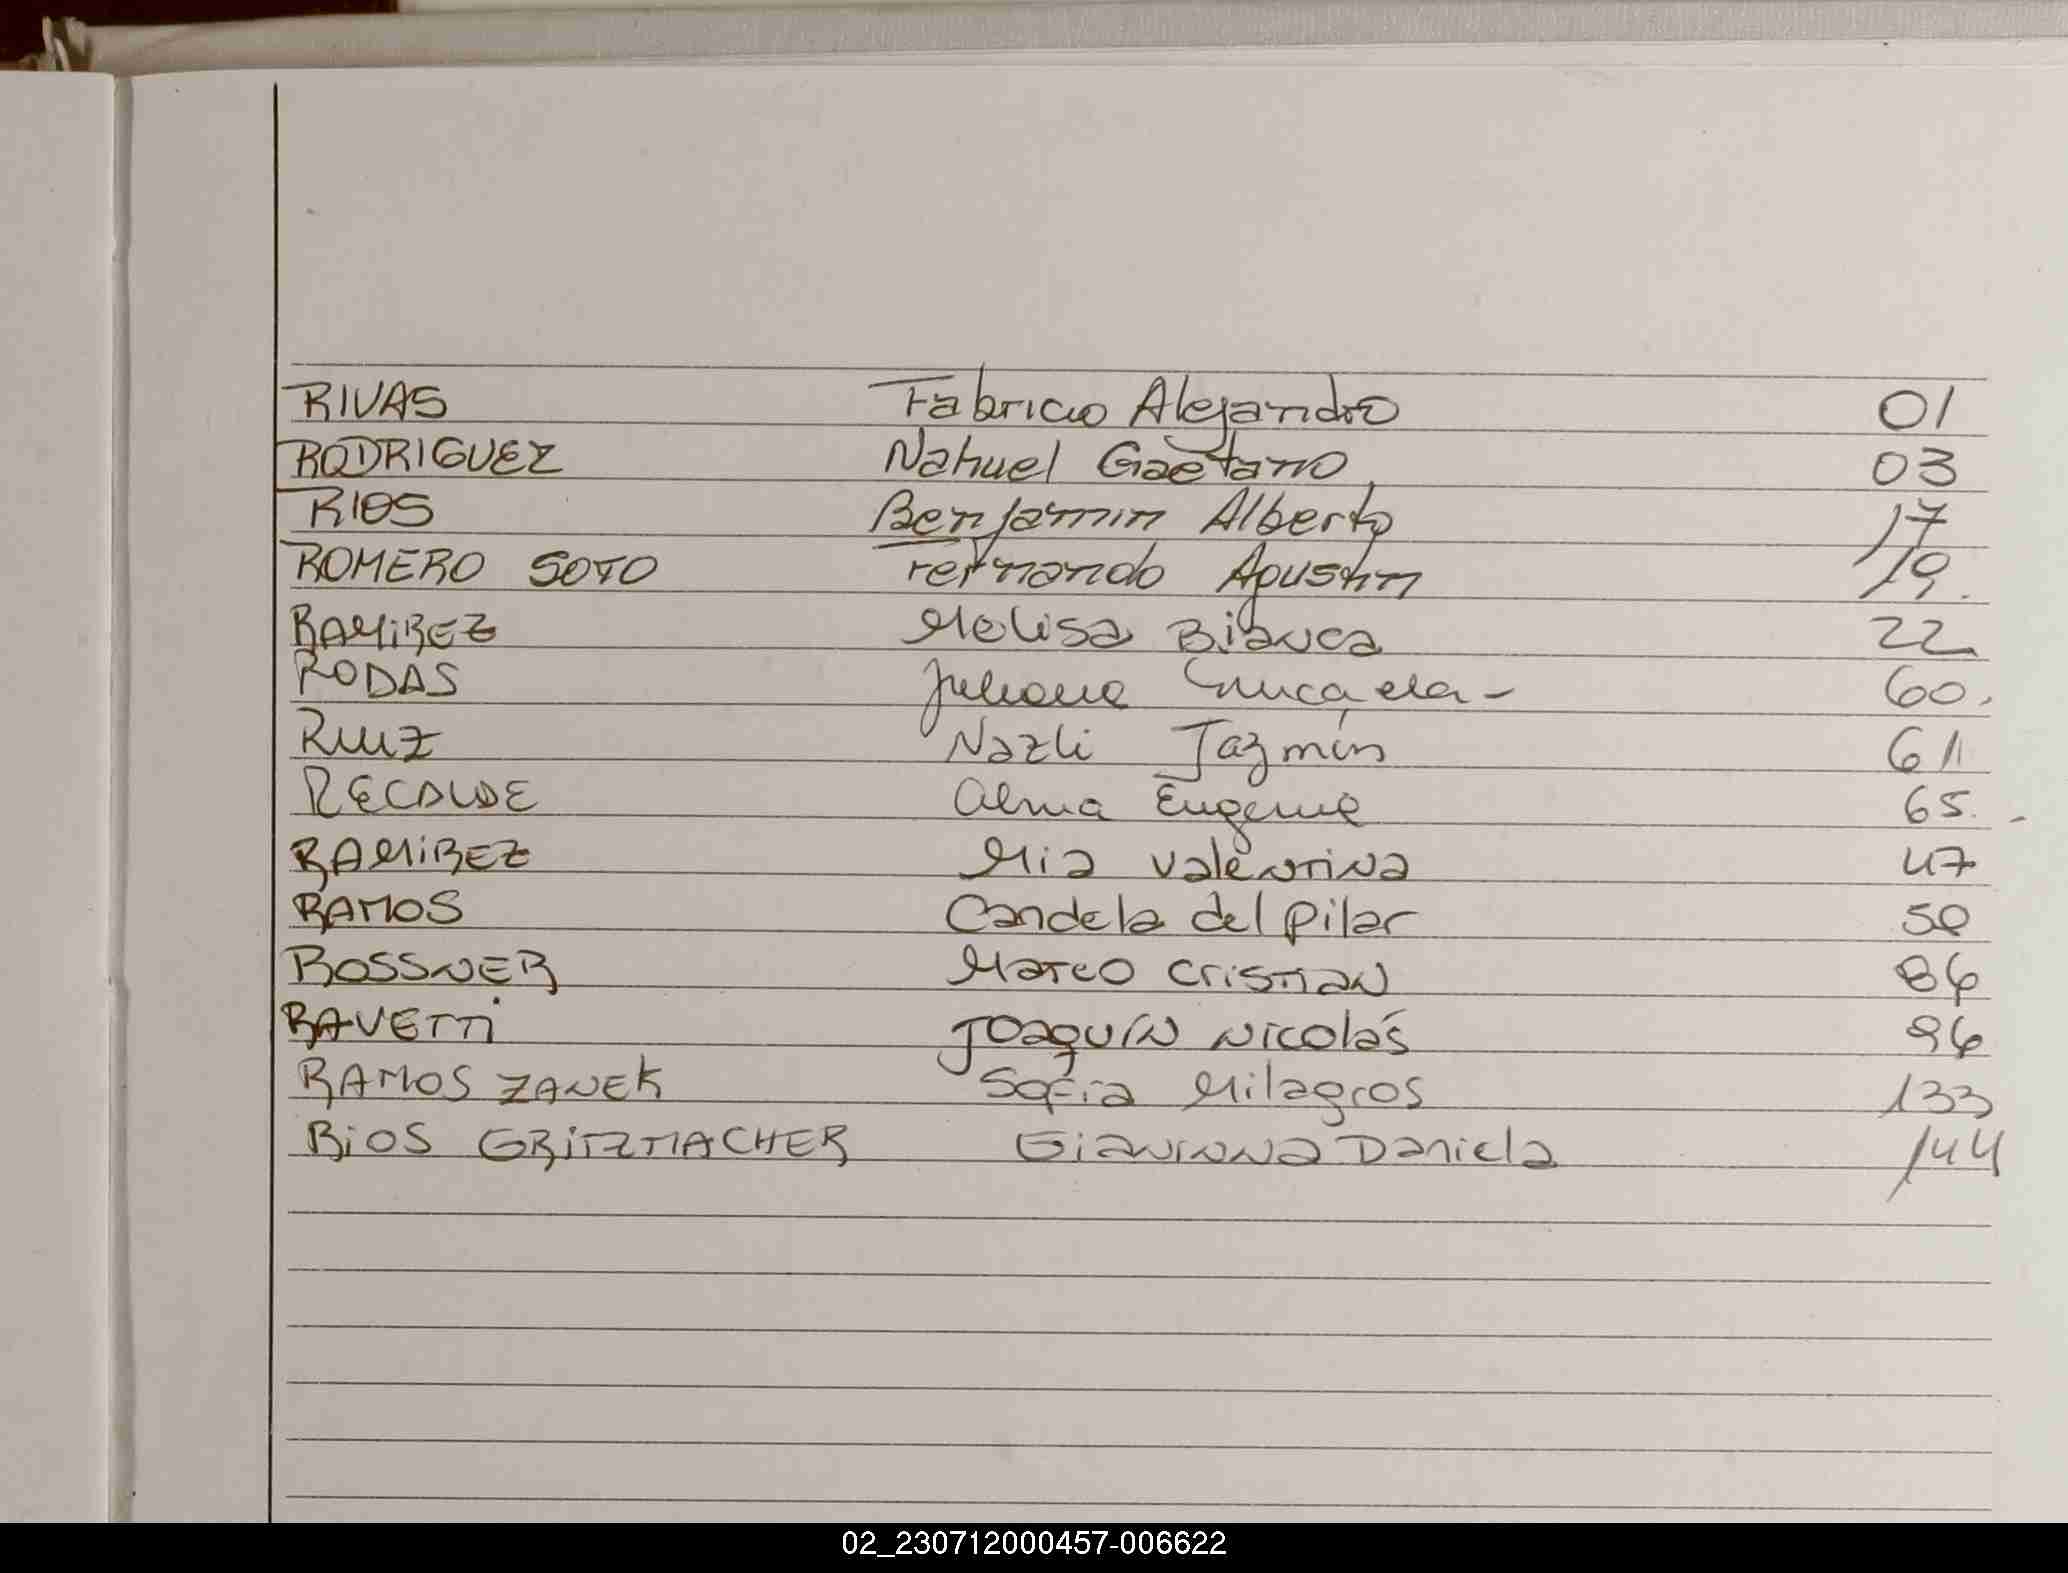 RIVAS Fabricio Alejandro 01
RODRIGUEZ Nahuel Gaetano 03
RIOS Benjamin Alberto 17
ROMERO SOTO Fernando Agustin 19.
RAMIREZ Melisa Bianca 22
RODAS Juliana Micaela - 60.
RUIZ Nazli Jazmín 61
RECALDE Alma Eugenia 65.
RAMIREZ Mia Valentina 47
RAMOS Candela del Pilar 50
ROSSNER Marco Cristian 86
RAVETTI Joaquín Nicolás 96
RAMOS ZANEK Sofia Milagros 133
RIOS GRITZMACHER Daniela 144
02_230712000457-006622